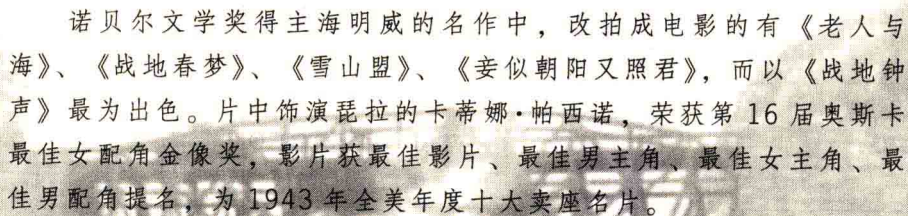 诺贝尔文学奖得主海明威的名作中，改拍成电影的有《老人与
海》、《战地春梦》、《雪山盟》、《妾似朝阳又照君》，而以《战地钟
声》最为出色。片中饰演琵拉的卡蒂娜·帕西诺，荣获第 16 届奥斯卡
最佳女配角金像奖，影片获最佳影片、最佳男主角、最佳女主角、最
佳男配角提名，为 1943 年全美年度十大卖座名片。